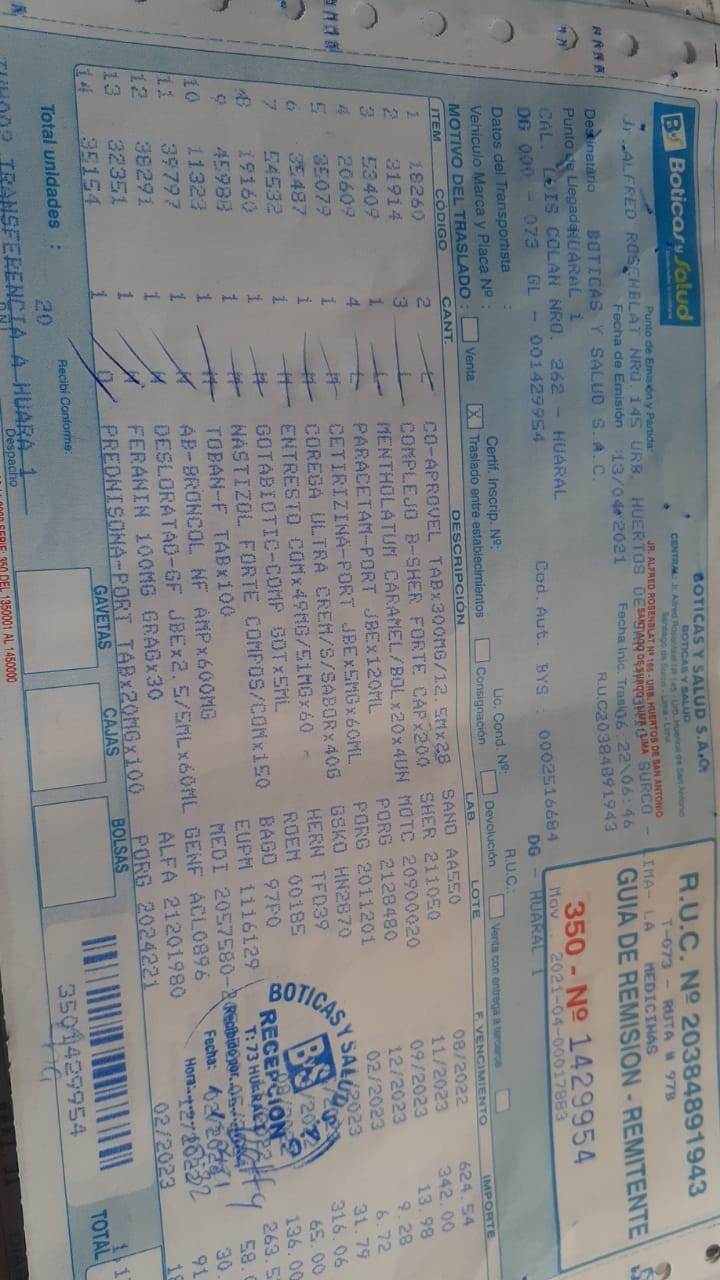 BS Boticas y Salud
BOTICAS Y SALUD S.A.C.
BOTICAS Y SALUD
JR. ALFRED ROSENBLAT Nº 165 - URB. HUERTOS DE SAN ANTONIO
SANTIAGO DE SURCO - LIMA - LIMA
R.U.C. Nº 20384891943
T-073 - RUTA # 97B
LIMA- LA MEDICINAS
GUIA DE REMISION - REMITENTE
350 - Nº 1429954
Mov. 2021-04-00017883
Punto de Emisión y Partida:
Jr. ALFRED ROSENBLAT NRO. 145 URB. HUERTOS DE SURCO -
Fecha de Emisión :13/04/2021 Fecha Inic. Tras
22:06:46
Destinatario BOTICAS Y SALUD S.A.C. R.U.C20384891943
Punto de Llegada HUARAL 1
CAL. LUIS COLAN NRO. 262 - HUARAL Cod. Aut. BYS : 0002516684
DG 000 - 073 GL - 001429954 DG - HUARAL 1
Datos del Transportista : R.U.C.:
Vehículo Marca y Placa Nº : Certif. Inscrip. Nº: Lic. Cond. Nº:
MOTIVO DEL TRASLADO : Venta X Traslado entre establecimientos Consignación Devolución Venta con entrega a terceros
ITEM CÓDIGO CANT. DESCRIPCIÓN LAB. LOTE F. VENCIMIENTO IMPORTE
1 18260 2 CO-APROVEL TABx300MG/12.5Mx28 SANO AA550 08/2022 624.54
2 31914 3 COMPLEJO B-SHER FORTE CAPx200 SHER 211050 11/2023 342.00
3 53409 1 MENTHOLATUM CARAMEL/BOLx20x4UN MOTC 20900020 09/2023 13.98
4 20609 4 PARACETAM-PORT JBEx120ML PORG 2128480 12/2023 9.28
5 35079 1 CETIRIZINA-PORT JBEx5MGx60ML PORG 2011201 02/2023 6.72
6 35487 1 COREGA ULTRA CREM/S/SABORx40G GSKO HN2870 /2023 31.79
7 54532 1 ENTRESTO COMx49MG/51MGx60 - HERN TFD39 316.06
8 19160 1 GOTABIOTIC-COMP GOTx5ML ROEM 00185 65.00
9 45988 1 NASTIZOL FORTE COMPOS/COMx150 BAGO 97P0 136.00
10 11323 1 TOBAN-F TABx100 EUPM 1116129 263.5
11 39797 1 AB-BRONCOL NF AMPx600MG MEDI 2057580- 58.
12 38291 1 DESLORATAD-GF JBEx2.5/5MLx60ML GENF ACL0896 30.
13 32351 1 FERANIN 100MG GRAGx30 ALFA 21201980 91
14 35154 1 PREDNISONA-PORT TABx20MGx100 PORG 2024221 02/2023
BOTICAS Y SALUD
BS
RECEPCIÓN
T: 73 HUARAL
Recibido por:
Fecha:
Hora:
Total unidades : 20
Recibí Conforme:
GAVETAS CAJAS BOLSAS
3501429954
TOTAL
TRANSFERENCIA A HUARA 1
Despacho
SERIE: 350 DEL 1350001 AL 1450000